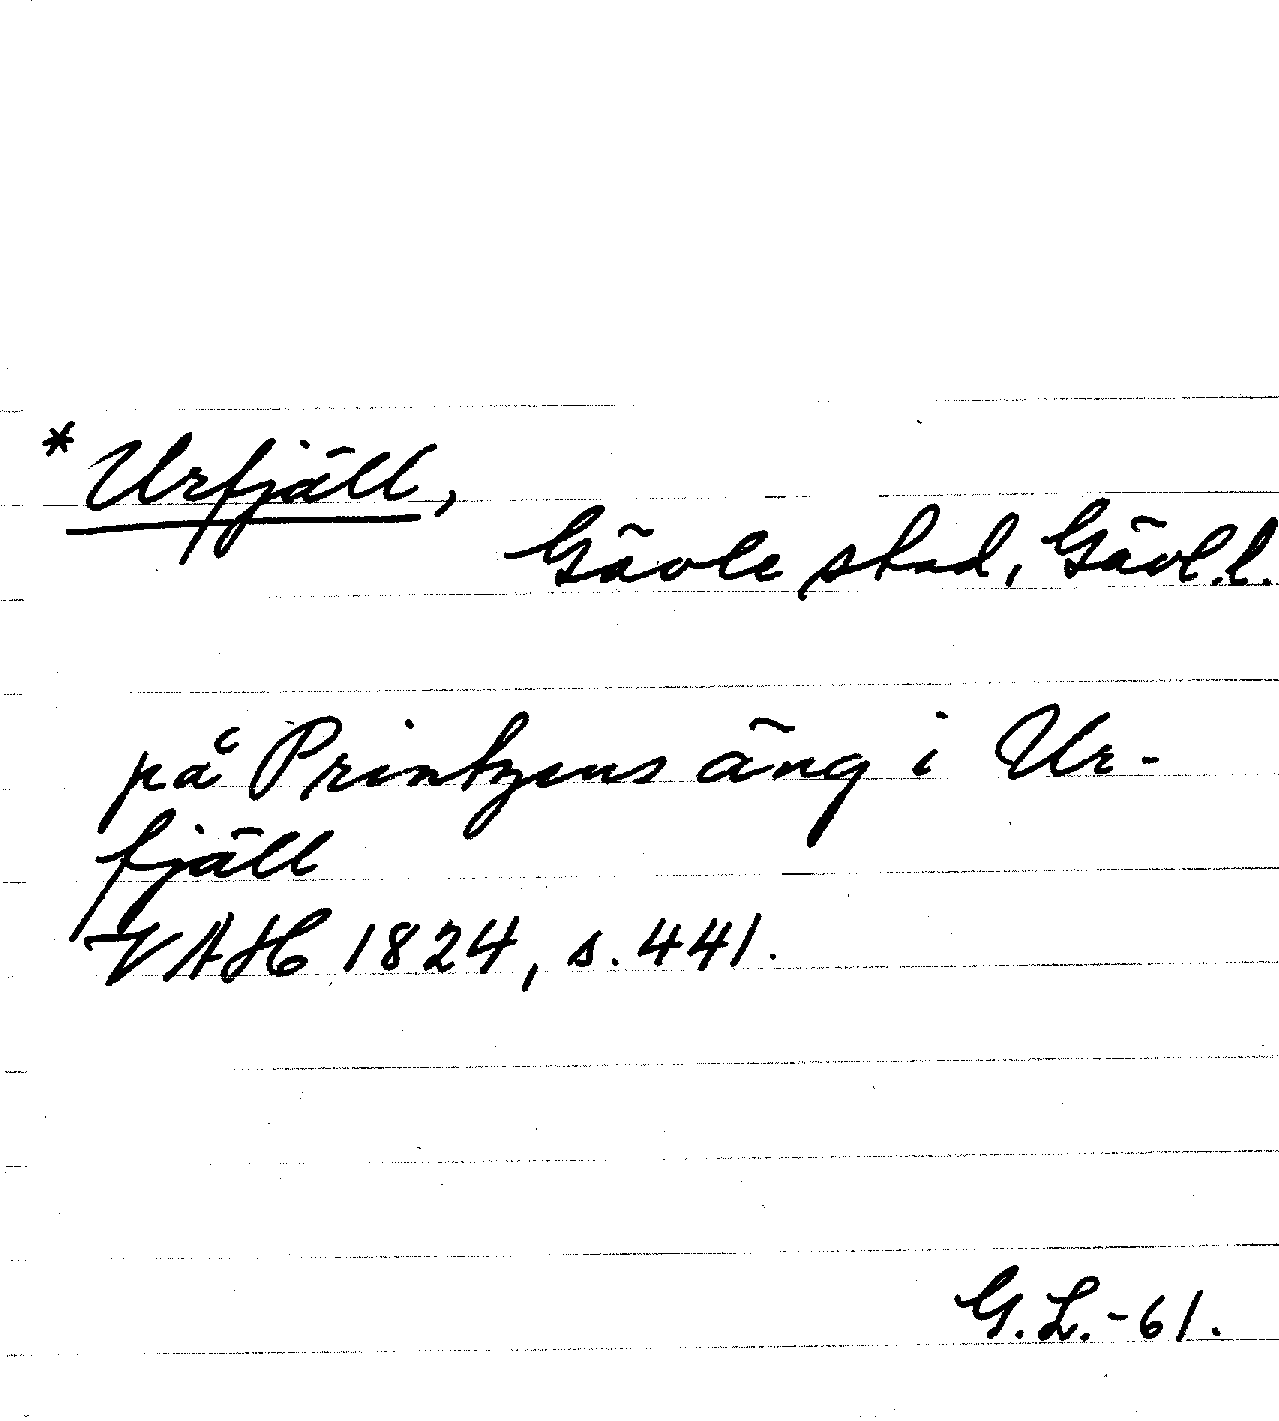 *Urfjäll,
Gävle stad, Gävl.l.
på Printzens äng i Ur-
fjäll
VAH 1824, s. 441.
G.L.-61.